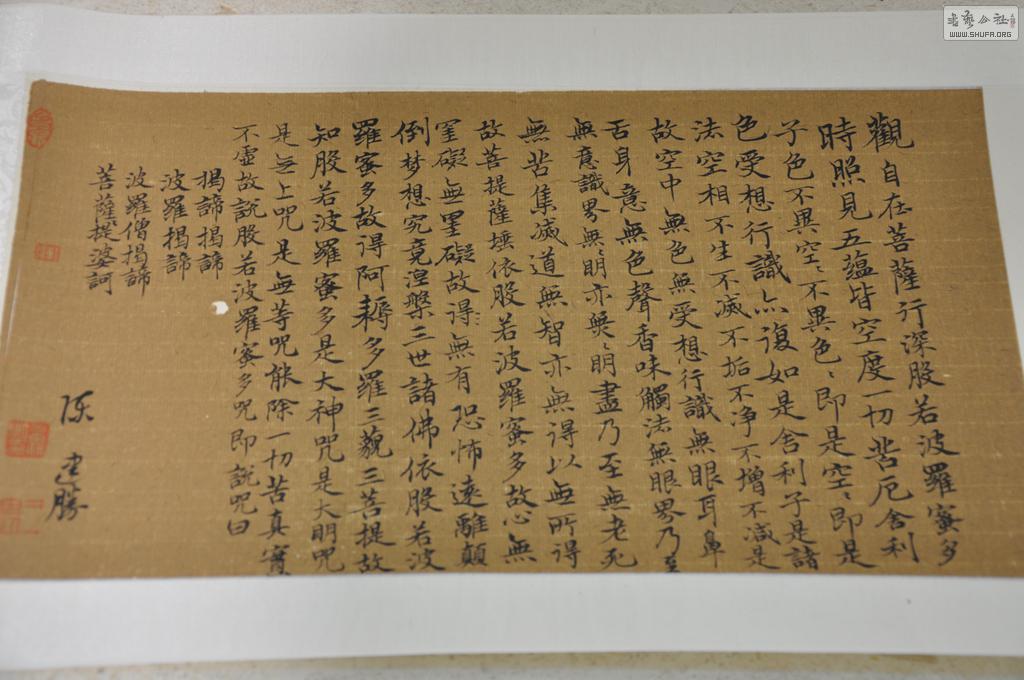 觀自在菩薩行深股若波羅蜜多
時照見五蕴皆空度一切苦厄舍利
子色不異空〻不異色〻即是空〻即是
色受想行識亦復如是舍利子是諸
法空相不生不滅不垢不净不增不減是
故空中無色無受想行識無眼耳鼻
舌身意無色聲香味觸法無眼界乃至
無意識界無〻明亦無〻明盡乃至無老死
無苦集滅道無智亦無得以無所得
故菩提薩埵依股若波羅蜜多故心無
罣礙無罣礙故得無有恐怖遠離顛
倒梦想究竟涅槃三世諸佛依股若波
羅蜜多故得阿耨多羅三藐三菩提故
知股若波羅蜜多是大神咒是大明咒
是無上咒是無等咒能除一切苦真實
不虚故説股若波羅蜜多咒即説咒曰
揭諦揭諦
波羅揭諦
波羅僧揭諦
菩薩提婆訶
陈建勝
書藝公社
WWW.SHUFA.ORG